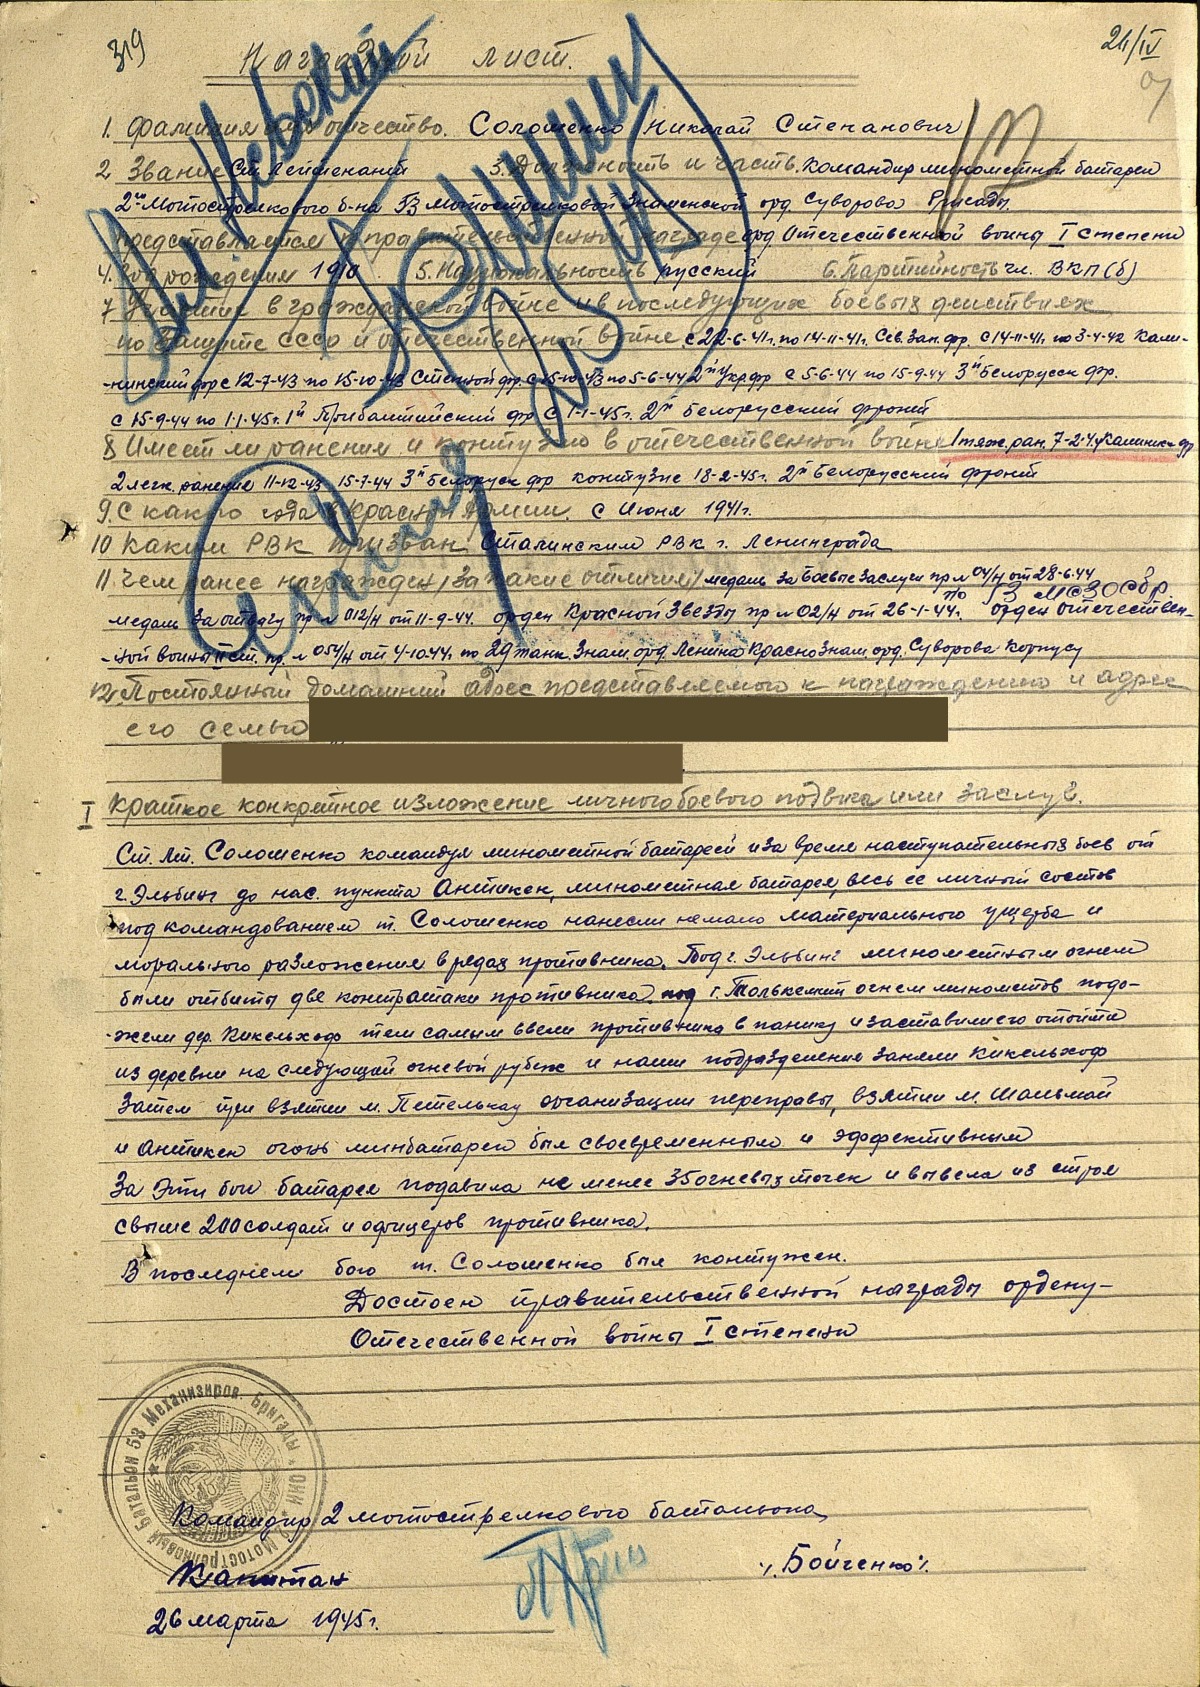 319
24/IV
Наградной лист.
1. Фамилия имя отчество. Солошенко Николай Степанович
2 Звание Ст. Лейтенант 3. Должность и часть. Командир минометной батареи
2го Мотострелкового б-на 53 Мотострелковой Знаменской орд. Суворова Бригады
представляется к правительственной награде орд Отечественной войны I степени
4. Год рождения 1910 5. Национальность русский 6. Партийность чл. ВКП(б)
7 Участие в гражданской войне и в последующих боевых действиях
по защите СССР и отечественной войне с 22-6-41г. по 14-11-41г. Сев. Зап. фр. с 14-11-41г. по 3-4-42 Кали-
-нинский фр с 12-7-43 по 15-10-43 Степной фр. с 15-10-43 по 5-6-44 2й Укр фр с 5-6-44 по 15-9-44 3й Белорусск фр.
с 15-9-44 по 1-1-45г. 1й Прибалтийский фр с 1-1-45г. 2й Белорусский фронт
8 Имеет ли ранения и контузию в отечественной войне 1 тяж. ран. 7-2-42 Калинин фр
2 легк. ранение 11-12-43 15-7-44 3й Белорусск фр контузие 18-2-45г. 2й Белорусский фронт
9. С какого года в Красной Армии. с Июня 1941г.
10 Каким РВК призван Сталинским РВК г. Ленинграда
11. Чем ранее награжден /за какие отличия/ медаль За боевые Заслуги пр № 04/н от 28-6-44
по 53 МСЗОСбр.
медаль За отвагу пр № 012/н от 11-9-44. орден Красной Звезды пр № 02/н от 26-1-44г. орден отечествен-
-ной войны II ст. пр. № 054/н от 4-10-44г. по 29 танк. Знам. орд. Ленина Краснознам. орд. Суворова Корпусу
12. Постоянный домашний адрес представляемого к награждению и адрес
его семьи
I Краткое конкретное изложение личного боевого подвига или заслуг.
Ст. Лт. Солошенко командуя минометной батареей и за время наступательных боев от
г. Эльбинг до нас. пункта Антикен, минометная батарея, весь ее личный состав
под командованием т. Солошенко нанесли немало материального ущерба и
морального разложения в рядах противника. Под г. Эльбинг минометным огнем
были отбиты две контратаки противника, под г. Толькемит огнем минометов подо-
-жели дер. Кикельхоф тем самым ввели противника в панику и заставили его отойти
из деревни на следующий огневой рубеж и наши подразделения заняли Кикельхоф
Затем при взятии м. Петелькау организации переправы, взятии м. Шальмай
и Антикен огонь минбатареи был своевременным и эффективным
За эти бои батарея подавила не менее 35 огневых точек и вывела из строя
свыше 200 солдат и офицеров противника.
В последнем бою т. Солошенко был контужен.
Достоен правительственной награды ордену-
Отечественной войны I степени
Мотострелковый Батальон 53 Механизиров. Бригады
Командир 2 мотострелкового батальона
Капитан /Бойченко/.
26 марта 1945г.